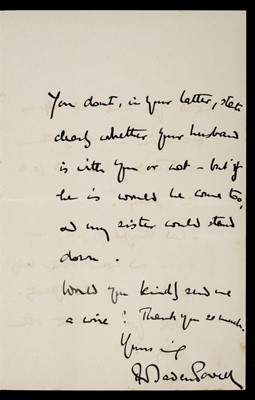 You don't, in your letter, state
clearly whether your husband
is with you or not – but if
he is would he come too,
and my sister could stand
down.
Would you kindly send me
a wire? Thank you so much.
Yours
R Baden Powell